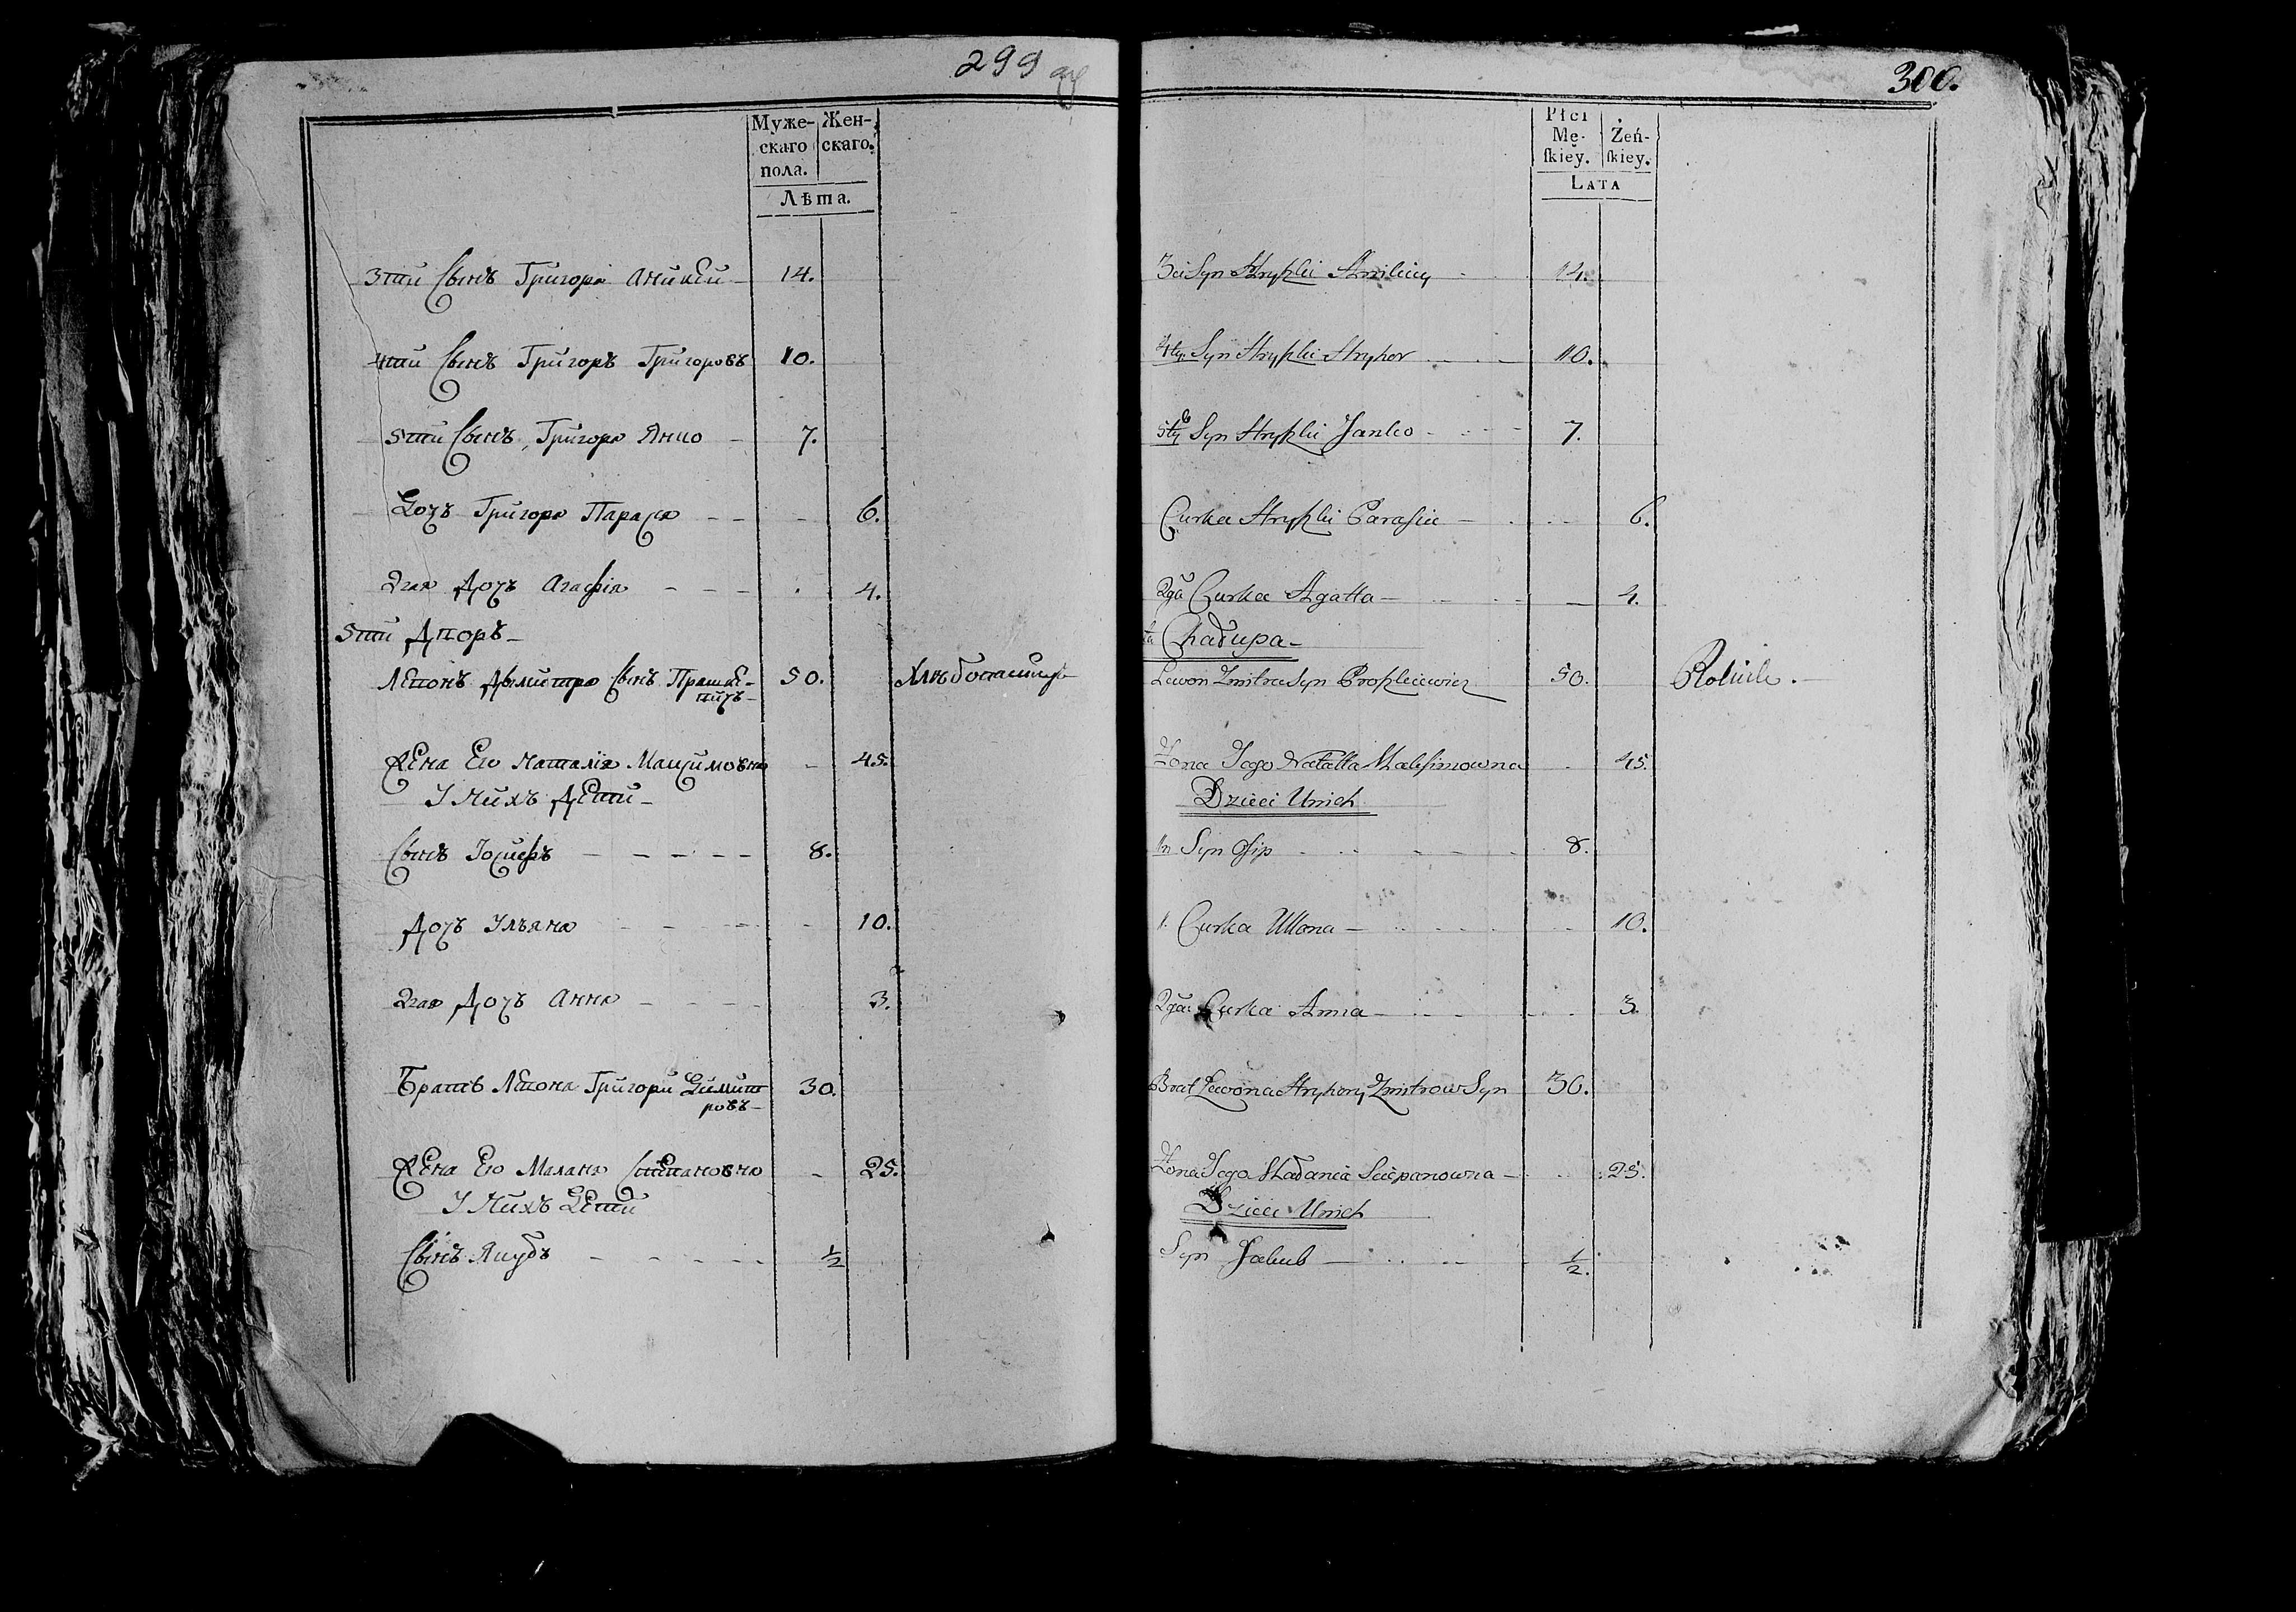 299 об
Муже- Жен-
скаго скаго.
пола.
Лѣта.
3тий Сынъ Григора Аникей 14.
4тий Сынъ Григоръ Григоровъ 10.
5тий Сынъ Григора Янко 7.
Дочъ Григора Парася 6.
2гая Дочъ Агафія 4.
5тий Дворъ
Левонъ Дымитра Сынъ Прашке-
вичъ 50. Хлѣбопашецъ
Жена Его Наталія Максимовна 45.
У Нихъ Дети
Сынъ Іосифъ 8.
Дочъ Ульяна 10.
2гая Дочъ Анна 3.
Братъ Левона Григори Димит
ровъ 30.
Жена Его Малана Степановна 25.
У Нихъ Дети
Сынъ Якубъ 1/2
300.
Płci
Mę- Żeń-
ſkiey. ſkiey.
LATA
3ci Syn Hryszki 14.
4ty Syn Hryszki Hryhor 10.
5ty Syn Hryszki Janko 7.
Curka Hryszki Parasia 6.
2ga Curka Agatta 4.
ta Chałupa
Lewon Zmitra Syn 50. Rolnik.
Żona Jego Natalla Maksimowna 45.
Dzieci Unich
1n Syn Osip 8.
1. Curka Ullana 10.
2ga Curka Anna 3.
Brat Lewona Hryhory Zmitrow Syn 30.
Żona Jego Małania Sciepanowna 25.
Dzieci Unich
Syn Jakub 1/2.